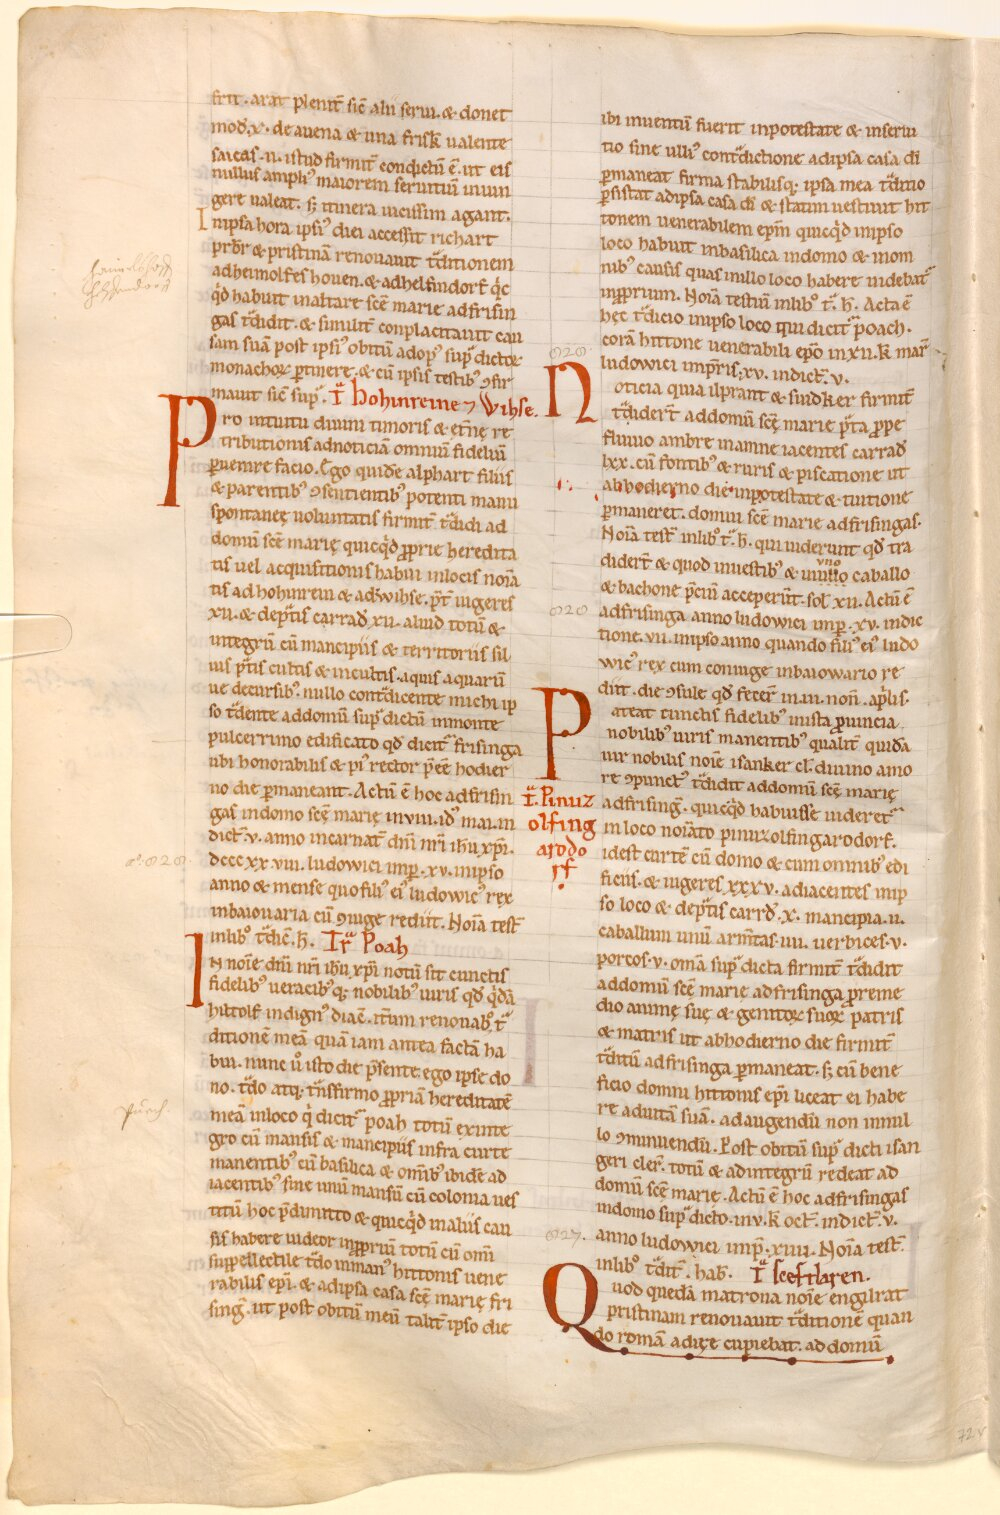 frit. arat plenit̄ sic̄ alii serui. & donet
mod̄. x. de auena & una frisk̄ ualente
saicas. ii. istud firmit̄ condictū ē. ut eis
nullus ampliꝰ maiorem seruitiū iniun
gere ualeat. sȝ itinera uicissim agant.
Inipsa hora ipsiꝰ diei accessit richart
prb̄r & pristinā renouauit t̄ditionem
adheimolfes houen. & adhelfindorf q̇c
q̇d habuit inaltare scē marie adfrisin
gas t̄didit. & similit̄ conplacitauit cau
sam suā post ipsiꝰ obitū adopꝰ sup̄dictoꝝ
monachoꝝ ꝑtinere. & cū ipsis testibꝰ ꝯfir
mauit sic̄ sup̄. T̄ hohinreine ⁊ Wihse.
Pro intuitu diuini timoris & et̄nę re
tributionis adnoticiam omniū fidelium
ꝑuenire facio. Ego quidē alphart filius
& parentibꝰ ꝯsentientibꝰ potenti manu
spontaneę uoluntatis firmit̄ t̄didi ad
domū scē marię quicq̇d ꝓprie heredita
tis uel acquisitionis habui inlocis noīa
tis ad hohinrein & ad wihse. p̄t̄ uigeres
xii. & dep̄tis carrad̄ xii. aliud totū &
integrū cū mancipiis & territoriis sil
uis p̄tis cultis & incultis. aquis aquarū
ue decursibꝰ. nullo cont̄dicente michi ip
so t̄dente addomū sup̄dictū inmonte
pulcerrimo edificato qd̄ dicit̄ frisinga
ubi honorabilis & piꝰ rector p̄eē hodier
no die ꝑmaneant. Actū ē hoc adfrisin
gas indomo scē marię inviii. idꝰ mai. in
dict̄. v. anno incarnat̄ dn̄i nr̄i ihū xp̄i.
dccc xx viii. ludowici imp̄. xv. inipso
anno & mense quo filiꝰ eiꝰ ludowicꝰ rex
inbaiouuaria cū ꝯiuge rediit. Noīa test̄
inlibꝰ t̄dic̄. h̄. T̄ Poah
In noīe dn̄i nr̄i ihū xp̄i notū sit cunctis
fidelibꝰ ueracibꝰ qȝ nobilibꝰ uiris qd̄ q̇dā
hiltolf indignꝰ diac̄. it̄um renouabꝰ t̄
ditionē meā quā iam antea factā ha
bui. nunc ū̊ isto die p̄sente. ego ipse do
no. t̄do atqȝ t̄nsfirmo ꝓpriā hereditatē
meā inloco q̇ dicit̄ poah totū exinte
gro cū mansis & mancipiis infra curte
manentibꝰ cū basilica & om̄ibꝰ ibidē ad
iacentibꝰ sine unū mansū cū colonia ues
titū hoc p̄dimitto & quicq̇d inaliis cau
sis habere uideor inꝓpriū totū cū om̄i
suppellectile t̄do inmanꝰ hittonis uene
rabilis epī. & adipsā casā scē marię fri
sinḡ. ut post obitū meū talit̄ ipso die
ibi inuentū fuerit inpotestate & inserui
tio sine ulliꝰ cont̄dictione adipsā casā dī
ꝑmaneat firma stabilisqȝ ipsa mea t̄ditio
ꝑsistat adipsā casā dī & statim uestiuit hit
tonem uenerabilem epm̄ quicq̇d inipso
loco habuit inbasilica indomo & inom
nibꝰ causis quas inillo loco habere uidebat̄
inꝓprium. Noīa testiū inlibꝰ t̄. h̄. Acta ē
hęc t̄dicio inipso loco qui dicit̄ poach.
corā hittone uenerabili epō in xii. k̄ mar̄
ludowici imp̄ris. xv. indict̄. v.
Noticia quia ilprant & suidker firmit̄
t̄didert̄ addomū scē marie p̄ta ꝓpe
fluuio ambre inamne iacentes carrad̄
lxx. cū fontibꝰ & ruris & piscatione ut
abhodierno die inpotestate & tuitione
ꝑmaneret. domui scē marie adfrisingas.
Noīa test̄ inlibꝰ t̄. h̄. qui uiderunt qd̄ tra
didert̄ & quod inuestibꝰ & uno caballo
& bachone p̄ciū acceperūt. sol̄ xii. Actū ē
adfrisinga anno ludowici imp̄. xv. indic
tione. vii. inipso anno quando filiꝰ eiꝰ ludo
wicꝰ rex cum coniuge inbaiowario re
diit. die ꝯsule qd̄ fecer̄ in iii. non̄. ap̄lis.
Pateat cunctis fidelibꝰ inista ꝓuincia
nobilibꝰ uiris manentibꝰ qualit̄ quidā
uir nobilis noīe isanker cl̄. diuino amo
re ꝯpunctꝰ t̄didit addomū scē marię
T̄. Pinuz
olfing
arodo
rf.
adfrisinḡ. quicq̇d habuisse uideret̄
in loco noīato pinuzolfingarodorf.
idest curtē cū domo & cum omnibꝰ edi
ficiis. & uigeres xxxv. adiacentes inip
so loco & dep̄tis carrd̄. x. mancipia. ii.
caballum unū armt̄as. iiii. uerbices. v.
porcos. v. om̄a sup̄dicta firmit̄ t̄didit
addomū scē marię adfrisinga ꝓreme
dio animę suę & genitoꝝ suoꝝ patris
& matris ut abhodierno die firmit̄
t̄ditū adfrisinga ꝑmaneat. sȝ cū bene
ficio domni hittonis epī liceat ei habe
re aduitā suā. adaugendū non inmil
lo ꝯminuendū. Post obitū sup̄dicti isan
geri cler̄. totū & adintegrū redeat ad
domū scē marię. Actū ē hoc adfrisingas
indomo sup̄dicto. in v. k̄ oct̄. indict̄. v.
anno ludowici imp̄. xiiii. Noīa test̄.
inlibꝰ t̄dit̄. hab̄. T̄ sceftlaren.
Quod quedā matrona noīe engilrat
pristinam renouauit t̄ditionē quan
do romā adiꝫe cupiebat. ad domū
72v